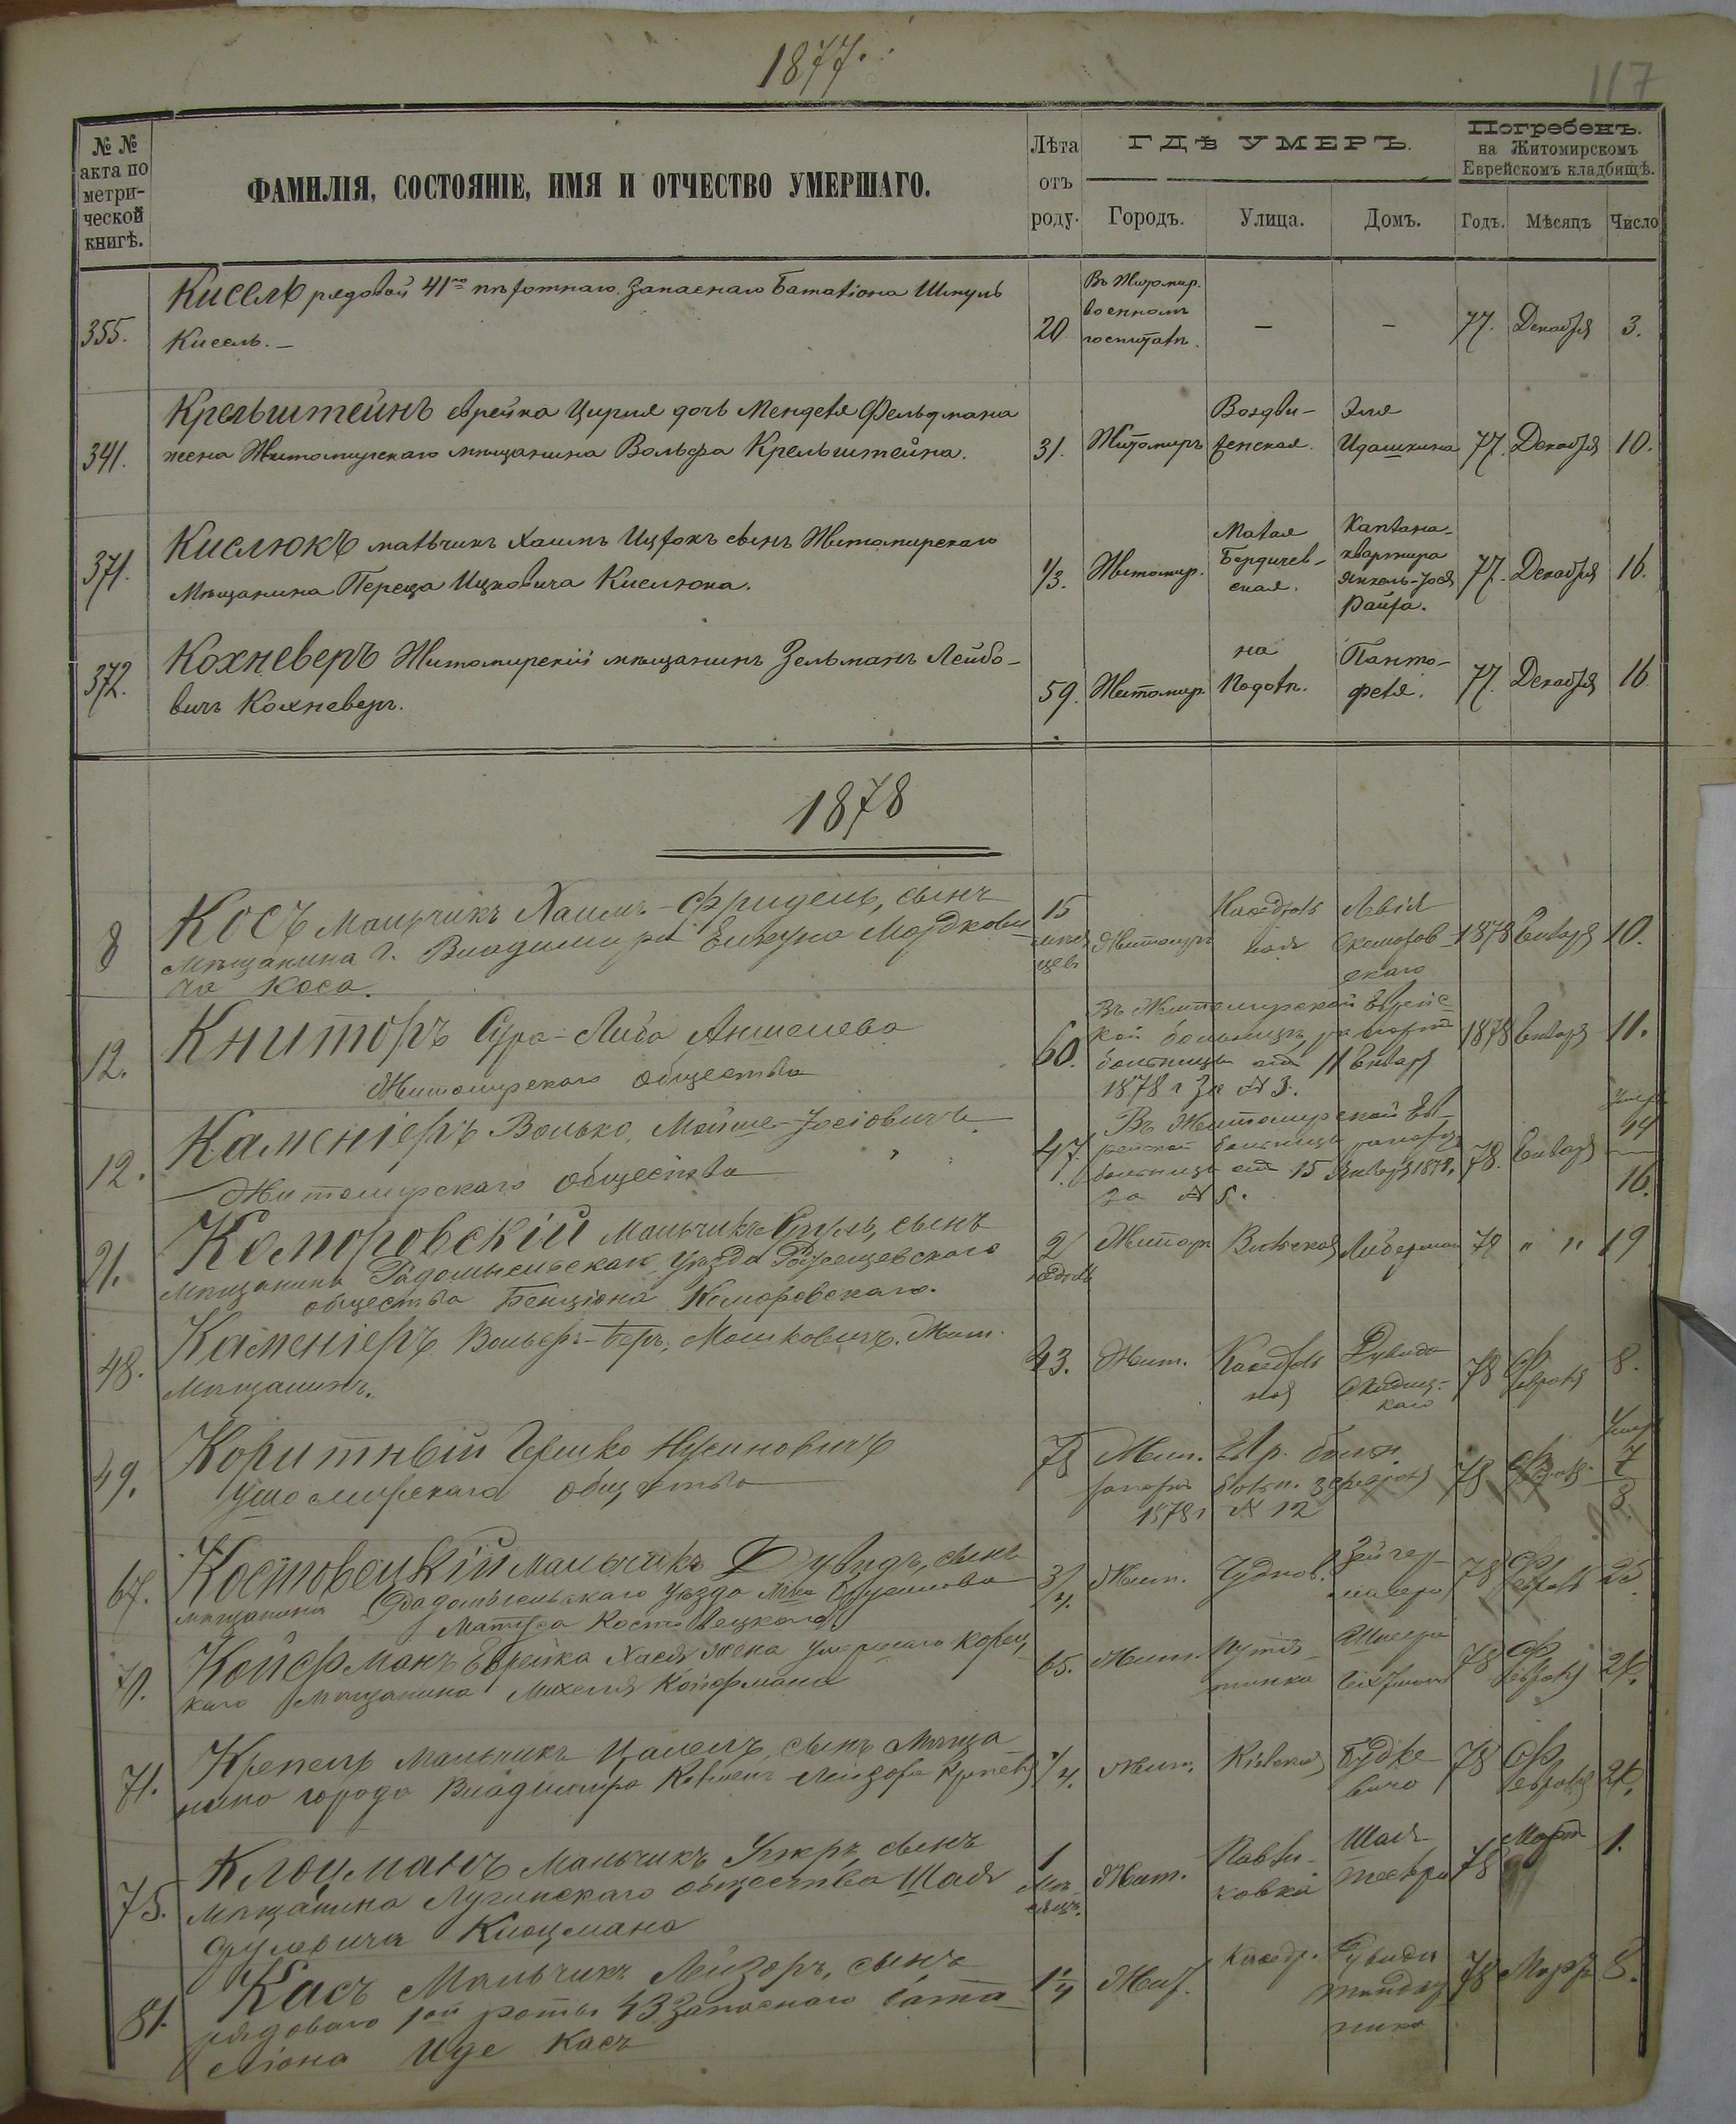 1877.
117
№ №
акта по
метри-
ческой
книгѣ.
ФАМИЛІЯ, СОСТОЯНІЕ, ИМЯ И ОТЧЕСТВО УМЕРШАГО.
Лѣта
отъ
роду.
ГДѢ УМЕРЪ.
Городъ.
Улица.
Домъ.
Погребенъ.
на Житомирскомъ
Еврейскомъ кладбищѣ.
Годъ.
Мѣсяцъ
Число
355.
Кисель рядовой 41го пѣхотнаго Запаснаго Баталіона Шмуль
Кисель. –
20
Въ Житомир.
военномъ
госпиталѣ.
–
–
77.
Декабря
3.
341.
Крельштейнъ еврейка Цирля дочь Менделя Фельдмана
жена Житомирскаго мѣщанина Вольфа Крельштейна.
31.
Житомиръ
Воздви-
женская.
Эля
Идашкина
77.
Декабря
10.
371.
Кислюкъ мальчикъ Хаимъ Ицхокъ сынъ Житомирскаго
Мѣщанина Переца Ицковича Кислюка.
1/3.
Житомир.
Малая
Бердичев-
ская.
Каплана-
квартира
Янкель-Іося
Райза.
77.
Декабря
16.
372.
Кохневеръ Житомирскій мѣщанинъ Зельманъ Лейбо-
вичъ Кохневеръ.
59.
Житомир.
на
Подолѣ.
Панто-
феля.
77.
Декабря
16
1878
8
Косъ Мальчикъ Хаимъ-Фридель, сынъ
Мѣщанина г. Владимира Мордкови
ча Коса.
15
Житомиръ
Каѳедраль
ная
Лейзя
скаго
1878
Января
10.
12.
Книторъ Сура-Либа Аншелева
Житомирскаго общества
60.
Въ Житомирской Еврейс-
кой больницѣ, рапортъ
больницы отъ 11 Января
1878 г за № 3.
1878
Января
11.
12.
Каменіеръ Волько Мойше-Іосіовичъ
Житомирскаго общества
47.
Въ Житомирской Ев-
рейской больницѣ рапортъ
больницы отъ 15 Января 1878.
за № 5.
78.
Января
Умеръ
14
16.
21.
Коморовскій Мальчикъ Сруль, сынъ
Мѣщанина Радомысльскаго уѣзда
общества Бенціона Коморовскаго.
2
недѣль
Житомр
Вильская
Либерман
78
" "
19
48.
Каменіеръ Вольфъ-Беръ, Мошковичъ. Жит.
Мѣщанинъ.
43.
Жит.
Каѳедраль
ная
Дувида
каго
78
Февраля
8.
49.
Коритный Гершко Нусиновичъ
Ушомирскаго общества
78
Жит. Евр. больн.
рапортъ больн. 3 февраля
1878 г № 12
78
Февраля
Умеръ
7
8.
67.
Костовецкій мальчикъ Дувидъ, сынъ
мѣщанина Радомысльскаго уѣзда Мѣст. Брусилова
Костовецкаго
3/4.
Жит.
Чуднов.
78
Февраля
25.
70.
Койфманъ Еврейка Хася жена умершаго Корец
каго Мѣщанина Михеля Койфмана
65.
Жит.
Путя-
тинка
78
Февраля
24.
71.
Крепель Мальчикъ Цалель, сынъ Мѣща
нина города Владимира Лейзора Крепель
1/4.
Жит.
Кіевская
Будке
вича
78
Февраля
24.
75.
Клоцманъ Мальчикъ Ушеръ, сынъ
Мѣщанина Лугинскаго общества Шая
Срулевича Клоцмана
1
Мѣ-
сяцъ.
Жит.
Павли-
ковка
Шая
78
Март
1.
81.
Касъ Мальчикъ Лейзоръ, сынъ
рядоваго 1ой роты 43 запаснаго бата
ліона Иде Касъ
1 1/4
Жит.
Каѳедр.
Дувида
78
Март
8.